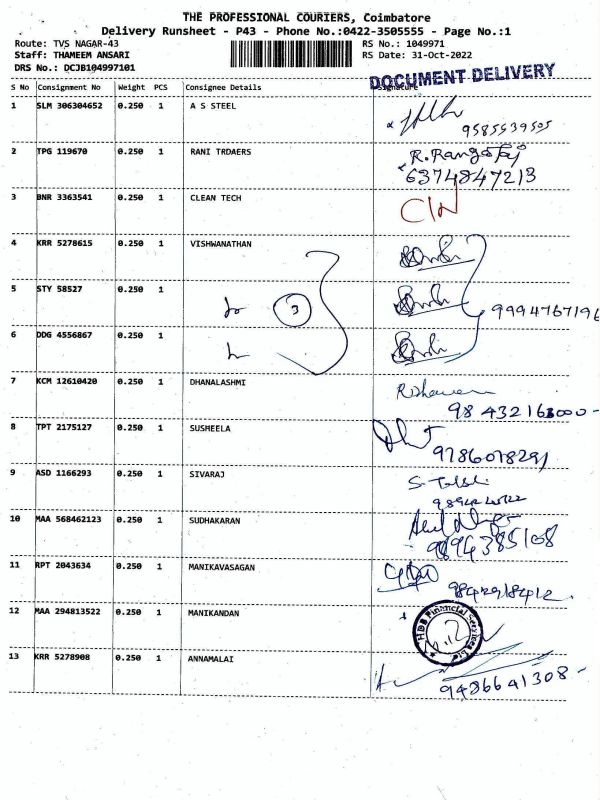 THE PROFESSIONAL COURIERS, Coimbatore
Delivery Runsheet - P43 - Phone No.:0422-3505555 - Page No.:1
Route: TVS NAGAR-43 RS No.: 1049971
Staff: THAMEEM ANSARI RS Date: 31-Oct-2022
DRS No.: DCJB104997101
DOCUMENT DELIVERY
S No Consignment No Weight PCS Consignee Details Signature
1 SLM 306304652 0.250 1 A S STEEL
9585539505
2 TPG 119670 0.250 1 RANI TRDAERS R. Rangaraj
6374847213
3 BNR 3363541 0.250 1 CLEAN TECH
4 KRR 5278615 0.250 1 VISHWANATHAN
5 STY 58527 0.250 1 3 9994767196
6 DDG 4556867 0.250 1
7 KCM 12610420 0.250 1 DHANALASHMI
8 TPT 2175127 0.250 1 SUSHEELA
9786078291
9 ASD 1166293 0.250 1 SIVARAJ
10 MAA 568462123 0.250 1 SUDHAKARAN
9894385108
11 RPT 2043634 0.250 1 MANIKAVASAGAN
9842918412
12 MAA 294813522 0.250 1 MANIKANDAN
HDB Financial Services Ltd
13 KRR 5278908 0.250 1 ANNAMALAI
9486641308